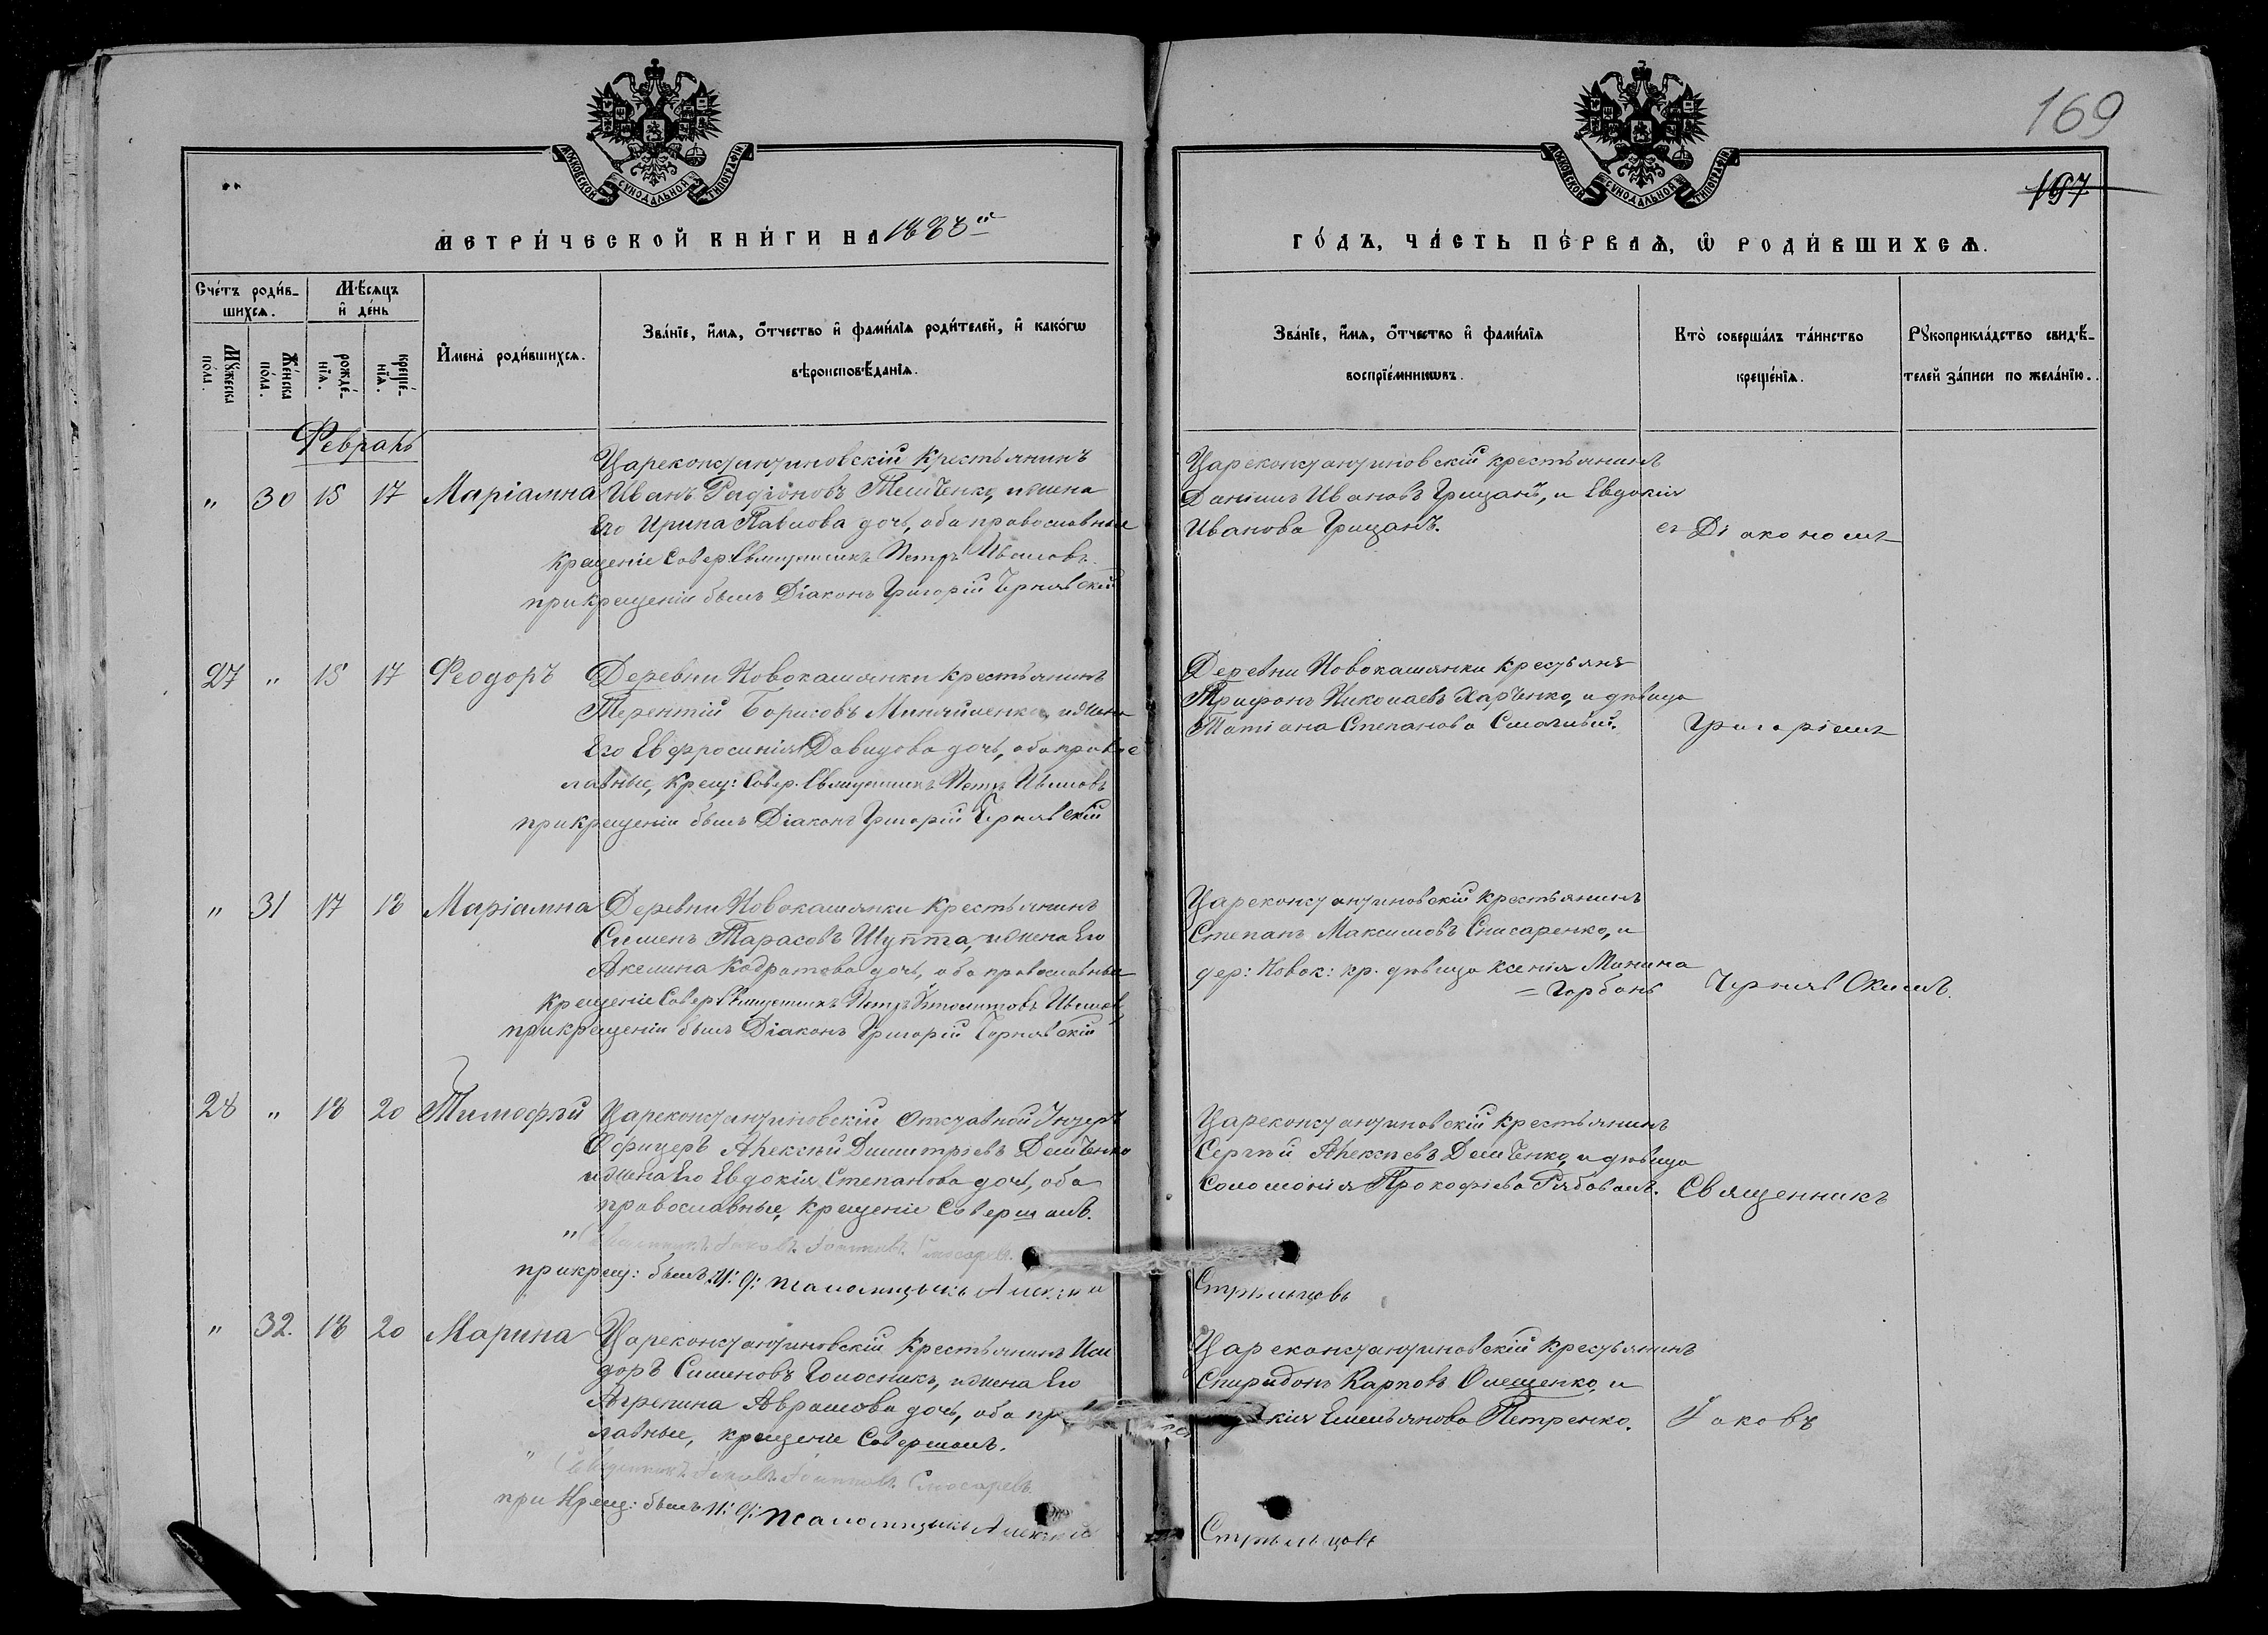 169
197
МОСКОВСКОЙ СѴНОДАЛЬНОЙ ТИПОГРАФІИ
МОСКОВСКОЙ СѴНОДАЛЬНОЙ ТИПОГРАФІИ
МЕТРИ́ЧЕСКОЙ КНИ́ГИ НА 1883й
ГО́ДЪ, ЧА́СТЬ ПЕ́РВАѦ, Ѡ РОДИ́ВШИХСѦ.
Сче́тъ роди́в-
шихсѧ.
Мѣ́сѧцъ
и҆ де́нь
Мꙋ́жеска по́ла.
Же́нска по́ла.
рожде́-нїѧ.
креще́-нїѧ.
И҆мена̀ роди́вшихсѧ.
Зва́нїе, и҆́мѧ, ѻ҆́тчество и҆ фами́лїѧ роди́телей, и҆ како́гѡ
вѣроисповѣ́данїѧ.
Зва́нїе, и҆́мѧ, ѻ҆́тчество и҆ фами́лїѧ
воспрїе́мникѡвъ.
Кто̀ соверша́лъ та́инство
креще́нїѧ.
Рꙋкоприкла́дство свидѣ́-
телей за́писи по жела́нїю.
Февраль
Цареконстантиновскій крестьянинъ
" 30 15 17 Маріамна Иванъ Радіоновъ Темченко, и жена
его Ирина Павлова дочь, оба православные
Крещеніе Совер. Священникъ Петръ
при крещеніи былъ Діаконъ Григорій Чернявскій
Цареконстантиновскій крестьянинъ
Даніилъ Ивановъ Грицанъ, и Евдокія
Иванова Грицанъ.
съ Діакономъ
27 " 15 17 Феодоръ Деревни Новокашянки крестьянинъ
Терентій Борисовъ и жена
его Евфросинія Давидова дочь, оба правос
лавные, Крещ: Совер. Священникъ Петръ
при крещеніи былъ Діаконъ Григорій Чернявскій
Деревни Новокашянки крестьянъ
Трифонъ Николаевъ Харченко, и дѣвица
Татіана Степанова
Григоріемъ
" 31 17 18 Маріамна Деревни Новокашянки Крестьянинъ
Симеонъ Тарасовъ Шупта, и жена его
Акелина Кодратова дочь, оба православные
Крещеніе Совер Священникъ Петръ
при крещеніи былъ Діаконъ Григорій Чернявскій
Цареконстантиновскій крестьянинъ
Степанъ Максимовъ Снисаренко, и
дер: Новок: кр. дѣвица Ксенія Минина
= Горбань
Чернявскимъ.
28 " 18 20 Тимофѣй Цареконстантиновскій Отставной Унтеръ
Офицеръ Алексѣй Димитріевъ Демченко
и жена его Евдокія Степанова дочь, оба
православные, крещеніе Совершалъ.
" Священникъ Іаковъ Слюсаревъ.
при крещ: былъ И: д: псаломщикъ Алексѣй
Цареконстантиновскій крестьянинъ
Сергѣй Алексѣевъ Демченко, и дѣвица
Соломонія Прокофіева
Священникъ
Стрѣльцовъ
" 32. 18 20 Марина Цареконстантиновскій Крестьянинъ Иси
доръ Симеоновъ Голосникъ, и жена его
Агрепина Аврамова дочь, оба
лавные, крещеніе Совершалъ.
" Священникъ Іаковъ Слюсаревъ
при Крещ: былъ И: д: псаломщикъ Алексѣй
Цареконстантиновскій крестьянинъ
Спиридонъ Карповъ Олещенко, и
Емельянова Петренко.
Іаковъ
Стрѣльцовъ